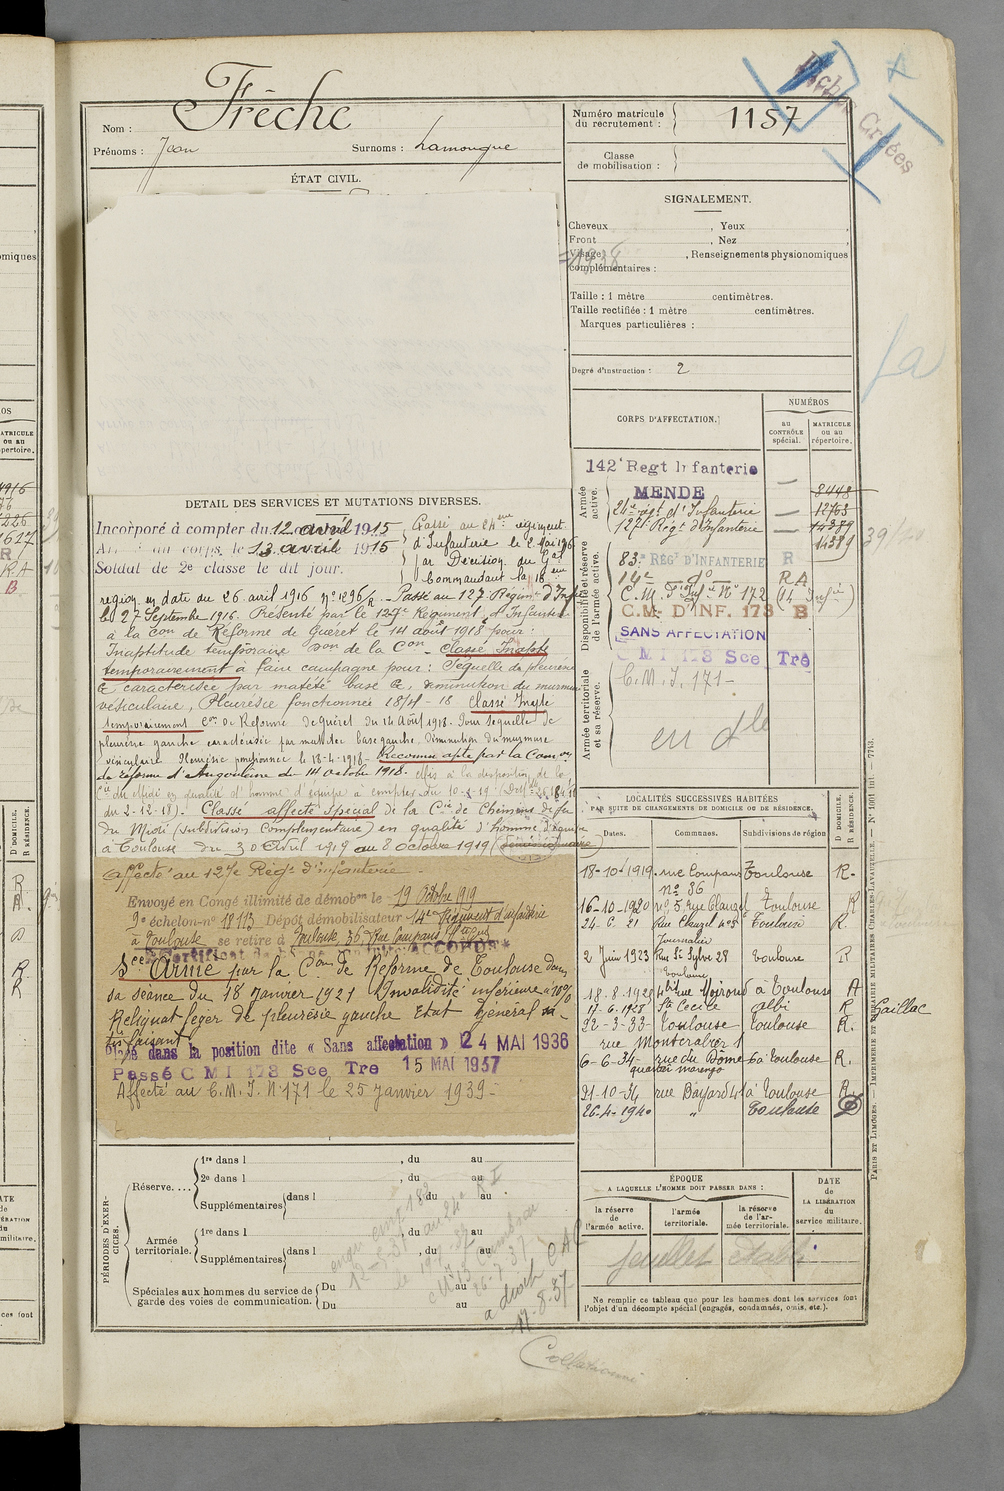 Frêche
Nom :
Prénoms : Jean
Surnoms : Lamouque
Numéro matricule du recrutement : 1157
Classe de mobilisation :
Fiches Créées
ÉTAT CIVIL.
SIGNALEMENT.
Cheveux , Yeux ,
Front , Nez
Visage , Renseignements physionomiques
complémentaires :
Taille : 1 mètre centimètres.
Taille rectifiée : 1 mètre centimètres.
Marques particulières :
Degré d'instruction : 2
DETAIL DES SERVICES ET MUTATIONS DIVERSES.
Incorporé à compter du 12 avril 1915
au corps, le 13 avril 1915
Soldat de 2e classe le dit jour.
Passé au 24eme régiment
d'Infanterie le 2 Mai 1916
par Décision du Gal
Commandant la 16eme
région en date du 26 avril 1916 n° 1296/R - Passé au 127 Régimt d'Infie
le 27 Septembre 1916. Présenté par le 127e Régiment d'Infanterie
à la con de Réforme de Guéret le 14 août 1918 pour :
Inaptitude temporaire Don de la Con - Classé Inapte
temporairement à faire campagne pour : Sequelle de pleurésie
G caractérisée par matité base G, diminution du murmure
vésiculaire, Pleurésie fonctionnée 18/4 - 18 Classé Inapte
temporairement Con de Réforme de Guéret du 14 Août 1918. Pour sequelle de
pleurésie gauche caractérisée par matité base gauche, diminution du murmure
vésiculaire Pleurésie ponctionnée le 18-4-1918 - Reconnu apte par la Comon
de réforme d'Angoulème du 14 octobre 1918. Mis à la disposition de la
Cie du Midi en qualité d'homme d'équipe à compter du
du 2-12-18). Classé affecté spécial de la Cie de Chemins de fer
du Midi (subdivision Complémentaire) en qualité d'homme d'équipe
à Toulouse du 30 Avril 1919 au 8 octobre 1919
Affecté au 127e Régt d'infanterie.
Envoyé en Congé illimité de démobon le 19 Octobre 1919
9e échelon - n° 18113 Dépôt démobilisateur 14e Régiment d'infanterie
à Toulouse se retire à Toulouse, 36, Rue Compans
Certificat de ACCORDÉ
Sce Armé par la Con de Réforme de Toulouse dans
sa séance du 18 janvier 1921 Invalidité inférieure à 10%
Reliquat léger de pleurésie gauche Etat général sa-
tisfaisant
Placé dans la position dite « Sans affectation » 24 MAI 1936
Passé C M I 173 Sce Tre 15 MAI 1937
Affecté au C.M.I. N°171 le 25 janvier 1939 -
CORPS D'AFFECTATION.
NUMÉROS
au CONTRÔLE spécial.
MATRICULE ou au répertoire.
Armée active.
142e Regt Infanterie
MENDE
24e régt d'Infanterie
127e Régt d'Infanterie
8448
12703
14389
14389
Disponibilité et réserve de l'armée active.
83e RÉGt D'INFANTERIE R
14e do R A
C.M. d'Infie N° 172
C.M. D'INF. 173 B
SANS AFFECTATION
C M I 173 Sce Tre
Armée territoriale et sa réserve.
C.M.I. 171 -
en dle
LOCALITÉS SUCCESSIVES HABITÉES
PAR SUITE DE CHANGEMENTS DE DOMICILE OU DE RÉSIDENCE.
Dates. Communes. Subdivisions de région
D DOMICILE.
R RÉSIDENCE.
18-10-1919 rue Compans n° 36 Toulouse R.
16-10-1920 n° 5 rue Clauzel Toulouse R
24-6-21 Rue Clauzel n° 5 Toulouse R.
2 Juin 1923 Rue St Sylve 28 Toulouse R
18-8-1925 rue Moiroud à Toulouse A
17-6-1928 Ste Cécile Albi R Gaillac
22-3-33 Toulouse Toulouse R.
rue Montcrabier 1
6-6-34 rue du Dôme 6 à Toulouse R.
quartier Marengo
21-10-34 rue Bayard 41 à Toulouse R.
26-4-1940 " Toulouse D
PÉRIODES D'EXERCICES.
Réserve....
1re dans l , du au
2e dans l , du au
Supplémentaires dans l du au
Armée territoriale.
1re dans l , du au
Supplémentaires dans l , du au
Spéciales aux hommes du service de garde des voies de communication.
Du au
Du au
a droit CAC
17-8-37
ÉPOQUE
A LAQUELLE L'HOMME DOIT PASSER DANS :
la réserve de l'armée active.
l'armée territoriale.
la réserve de l'armée territoriale.
DATE de LA LIBÉRATION du service militaire.
feuillet établi
Ne remplir ce tableau que pour les hommes dont les services font
l'objet d'un décompte spécial (engagés, condamnés, omis, etc.).
Collationné
PARIS ET LIMOGES. — IMPRIMERIE ET LIBRAIRIE MILITAIRES CHARLES-LAVAUZELLE. — N° 1001 int. — 7743.